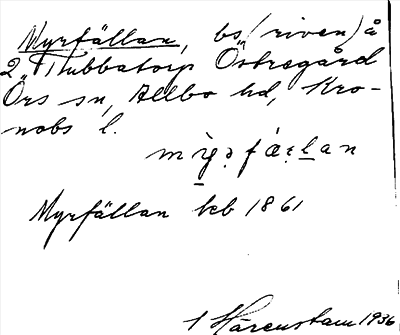 Myrfällan, bs (riven) å
2 Tubbatorp Östregård
Örs sn, Allbo hd, Kro-
nobs l.
Myrfällan kb 1861
1 Hårenstam 1936